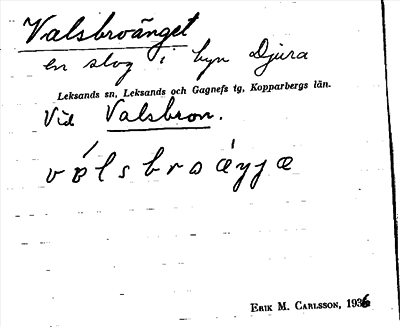 Valsbroänget
en slog i byn Djura
Leksands sn, Leksands och Gagnefs tg, Kopparbergs län.
Vid Valsbron.
ERIK M. CARLSSON, 1936